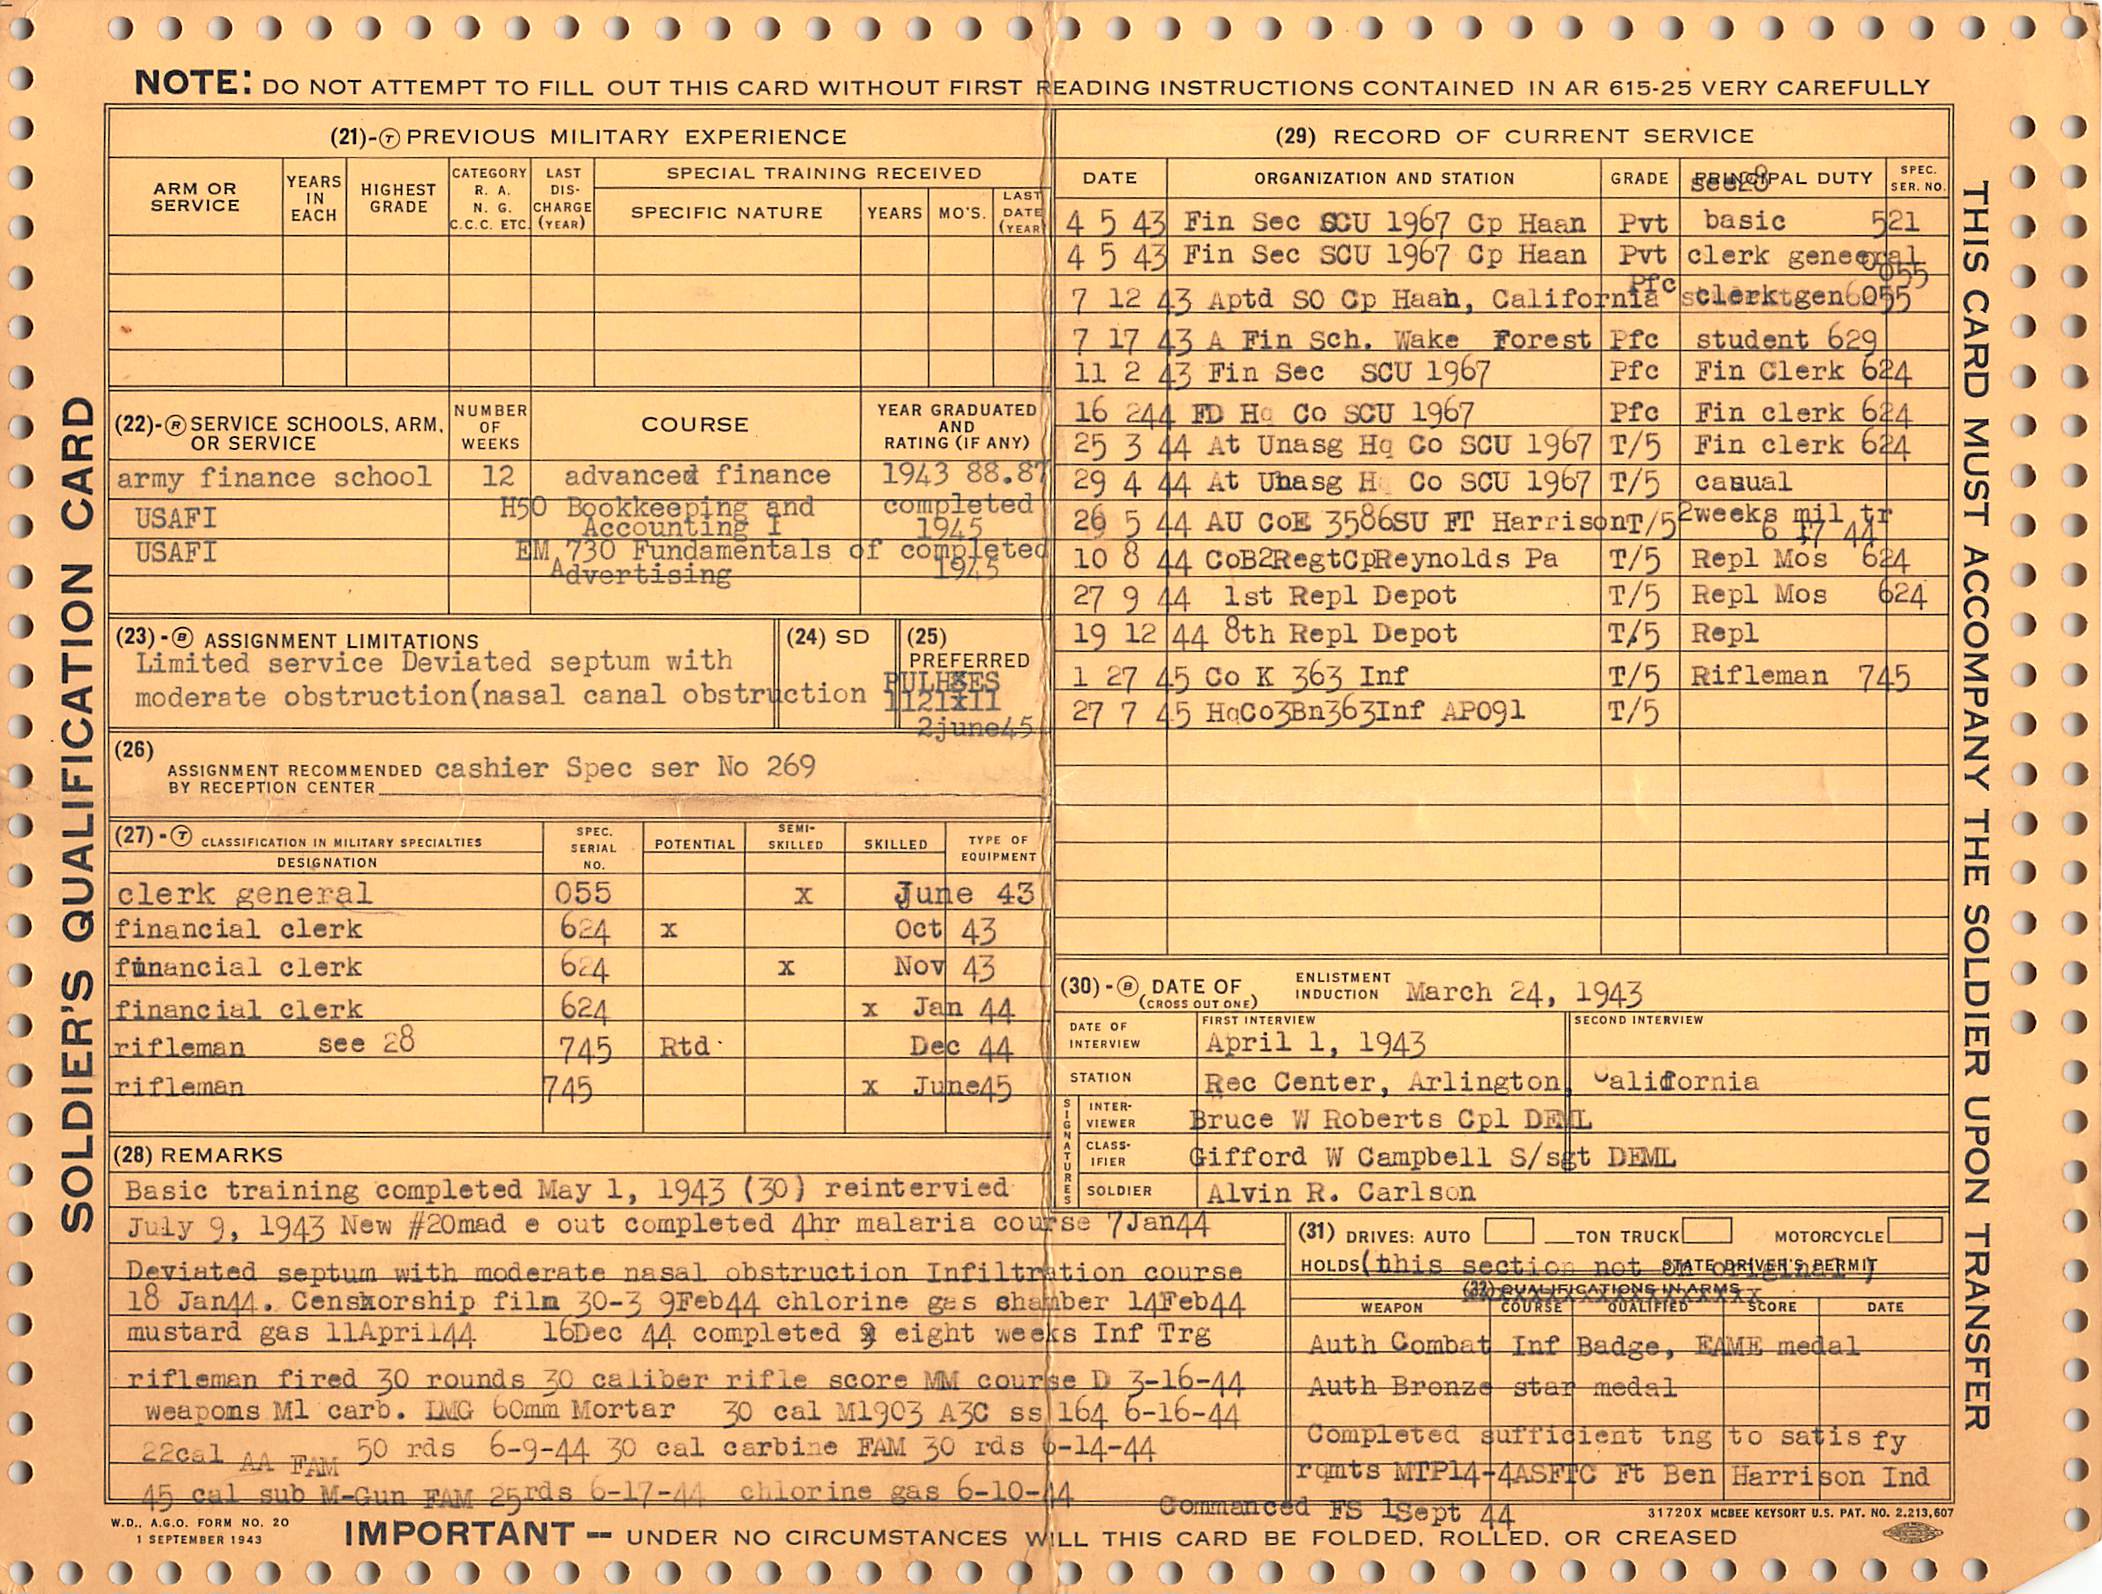 NOTE: DO NOT ATTEMPT TO FILL OUT THIS CARD WITHOUT FIRST READING INSTRUCTIONS CONTAINED IN AR 615-25 VERY CAREFULLY
SOLDIER'S QUALIFICATION CARD
(21)-Ⓣ PREVIOUS MILITARY EXPERIENCE
ARM OR SERVICE
YEARS IN EACH
HIGHEST GRADE
CATEGORY R. A. N. G. C.C.C. ETC.
LAST DIS- CHARGE (YEAR)
SPECIAL TRAINING RECEIVED
SPECIFIC NATURE
YEARS
MO'S.
LAST DATE (YEAR)
(22)-Ⓡ SERVICE SCHOOLS, ARM, OR SERVICE
NUMBER OF WEEKS
COURSE
YEAR GRADUATED AND RATING (IF ANY)
army finance school 12 advanced finance 1943 88.87
USAFI H50 Bookkeeping and Accounting I completed 1945
USAFI EM 730 Fundamentals of Advertising completed 1945
(23)-Ⓑ ASSIGNMENT LIMITATIONS
Limited service Deviated septum with
moderate obstruction(nasal canal obstruction
(24) SD
(25) PREFERRED
2june45
(26)
ASSIGNMENT RECOMMENDED BY RECEPTION CENTER cashier Spec ser No 269
(27)-Ⓣ CLASSIFICATION IN MILITARY SPECIALTIES
DESIGNATION
SPEC. SERIAL NO.
POTENTIAL
SEMI- SKILLED
SKILLED
TYPE OF EQUIPMENT
clerk general 055 x June 43
financial clerk 624 x Oct 43
financial clerk 624 x Nov 43
financial clerk 624 x Jan 44
rifleman see 28 745 Rtd Dec 44
rifleman 745 x June45
(28) REMARKS
Basic training completed May 1, 1943 (30) reintervied
July 9, 1943 New #20mad e out completed 4hr malaria course 7Jan44
Deviated septum with moderate nasal obstruction Infiltration course
18 Jan44. Censxorship film 30-3 9Feb44 chlorine gas chamber 14Feb44
mustard gas 11April44 16Dec 44 completed eight weeks Inf Trg
rifleman fired 30 rounds 30 caliber rifle score MM course D 3-16-44
weapons M1 carb. LMG 60mm Mortar 30 cal M1903 A3C ss 164 6-16-44
22cal AA FAM 50 rds 6-9-44 30 cal carbine FAM 30 rds 6-14-44
45 cal sub M-Gun FAM 25rds 6-17-44 chlorine gas 6-10-44
(29) RECORD OF CURRENT SERVICE
DATE
ORGANIZATION AND STATION
GRADE
PRINCIPAL DUTY
see28
SPEC. SER. NO.
4 5 43 Fin Sec SCU 1967 Cp Haan Pvt basic 521
4 5 43 Fin Sec SCU 1967 Cp Haan Pvt clerk general 055
7 12 43 Aptd SO Cp Haan, California Pfc clerk gen 055
7 17 43 A Fin Sch. Wake Forest Pfc student 629
11 2 43 Fin Sec SCU 1967 Pfc Fin Clerk 624
16 244 FD Hq Co SCU 1967 Pfc Fin clerk 624
25 3 44 At Unasg Hq Co SCU 1967 T/5 Fin clerk 624
29 4 44 At Unasg H Co SCU 1967 T/5 casual
26 5 44 AU CoE 3586SU FT Harrison T/5 2weeks mil tr 6 17 44
10 8 44 CoB2RegtCpReynolds Pa T/5 Repl Mos 624
27 9 44 1st Repl Depot T/5 Repl Mos 624
19 12 44 8th Repl Depot T/5 Repl
1 27 45 Co K 363 Inf T/5 Rifleman 745
27 7 45 HqCo3Bn363Inf APO91 T/5
(30)-Ⓑ DATE OF ENLISTMENT INDUCTION (CROSS OUT ONE) March 24, 1943
DATE OF INTERVIEW
FIRST INTERVIEW
April 1, 1943
SECOND INTERVIEW
STATION Rec Center, Arlington, California
SIGNATURES
INTER- VIEWER Bruce W Roberts Cpl DEML
CLASS- IFIER Gifford W Campbell S/sgt DEML
SOLDIER Alvin R. Carlson
(31) DRIVES: AUTO TON TRUCK MOTORCYCLE
HOLDS STATE DRIVER'S PERMIT
(this section not on original)
(32) QUALIFICATIONS IN ARMS
WEAPON COURSE QUALIFIED SCORE DATE
Auth Combat Inf Badge, EAME medal
Auth Bronze star medal
Completed sufficient tng to satisfy
rqmts MTP14-4ASFTC Ft Ben Harrison Ind
Commanced FS 1Sept 44
THIS CARD MUST ACCOMPANY THE SOLDIER UPON TRANSFER
W.D., A.G.O. FORM NO. 20
1 SEPTEMBER 1943
IMPORTANT — UNDER NO CIRCUMSTANCES WILL THIS CARD BE FOLDED, ROLLED, OR CREASED
31720X MCBEE KEYSORT U.S. PAT. NO. 2,213,607